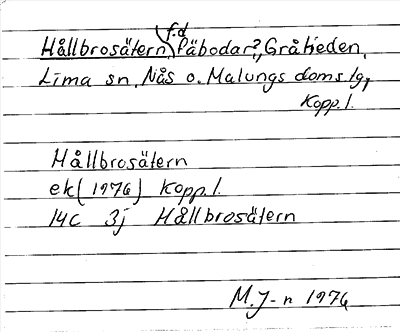 Hållbrosätern, f.d fäbodar?, Gråheden,
Lima sn, Nås o. Malungs doms lg,
Kopp. l.
Hållbrosätern
ek (1976) Kopp. l.
14c 3j Hållbrosätern
M. J-n 1976